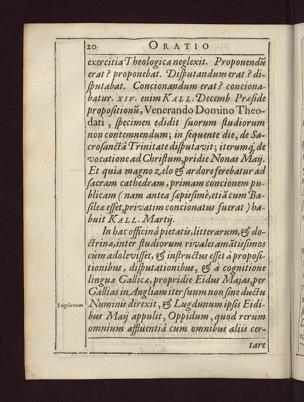 20 ORATIO
exercitia Theologica neglexit. Proponendū
erat? proponebat. Disputandum erat? di-
sputabat. Concionandum erat? conciona-
batur. XIV. enim KALL. Decemb Præside
propositionū, Venerando Domino Theo-
dati, specimen edidit suorum studiorum
non contemnendum; in sequente die, de Sa-
crosanctâ Trinitate disputavit; iterumq́; de
vocatione ad Christum, pridie Nonas Maij.
Et quia magno zelo & ardore ferebatur ad
sacram cathedram, primam concionem pu-
blicam (nam antea sæpissimè, etiā cum Ba-
sileæ esset, privatim concionatus fuerat) ha-
buit KALL. Martij.
In hac officinâ pietatis, litterarum, & do-
ctrinæ, inter studiorum rivales amātissimos
cùm adolevisset, & instructus esset à proposi-
tionibus, disputationibus, & à cognitione
linguæ Gallicæ, propridie Eidus Majas, per
Gallias in Angliam iter suum non sine ductu
Lugdunum. Numinis direxit, & Lugdunum ipsis Eidi-
bus Maij appulit, Oppidum, quod rerum
omnium affluentiâ cum omnibus aliis cer-
tare